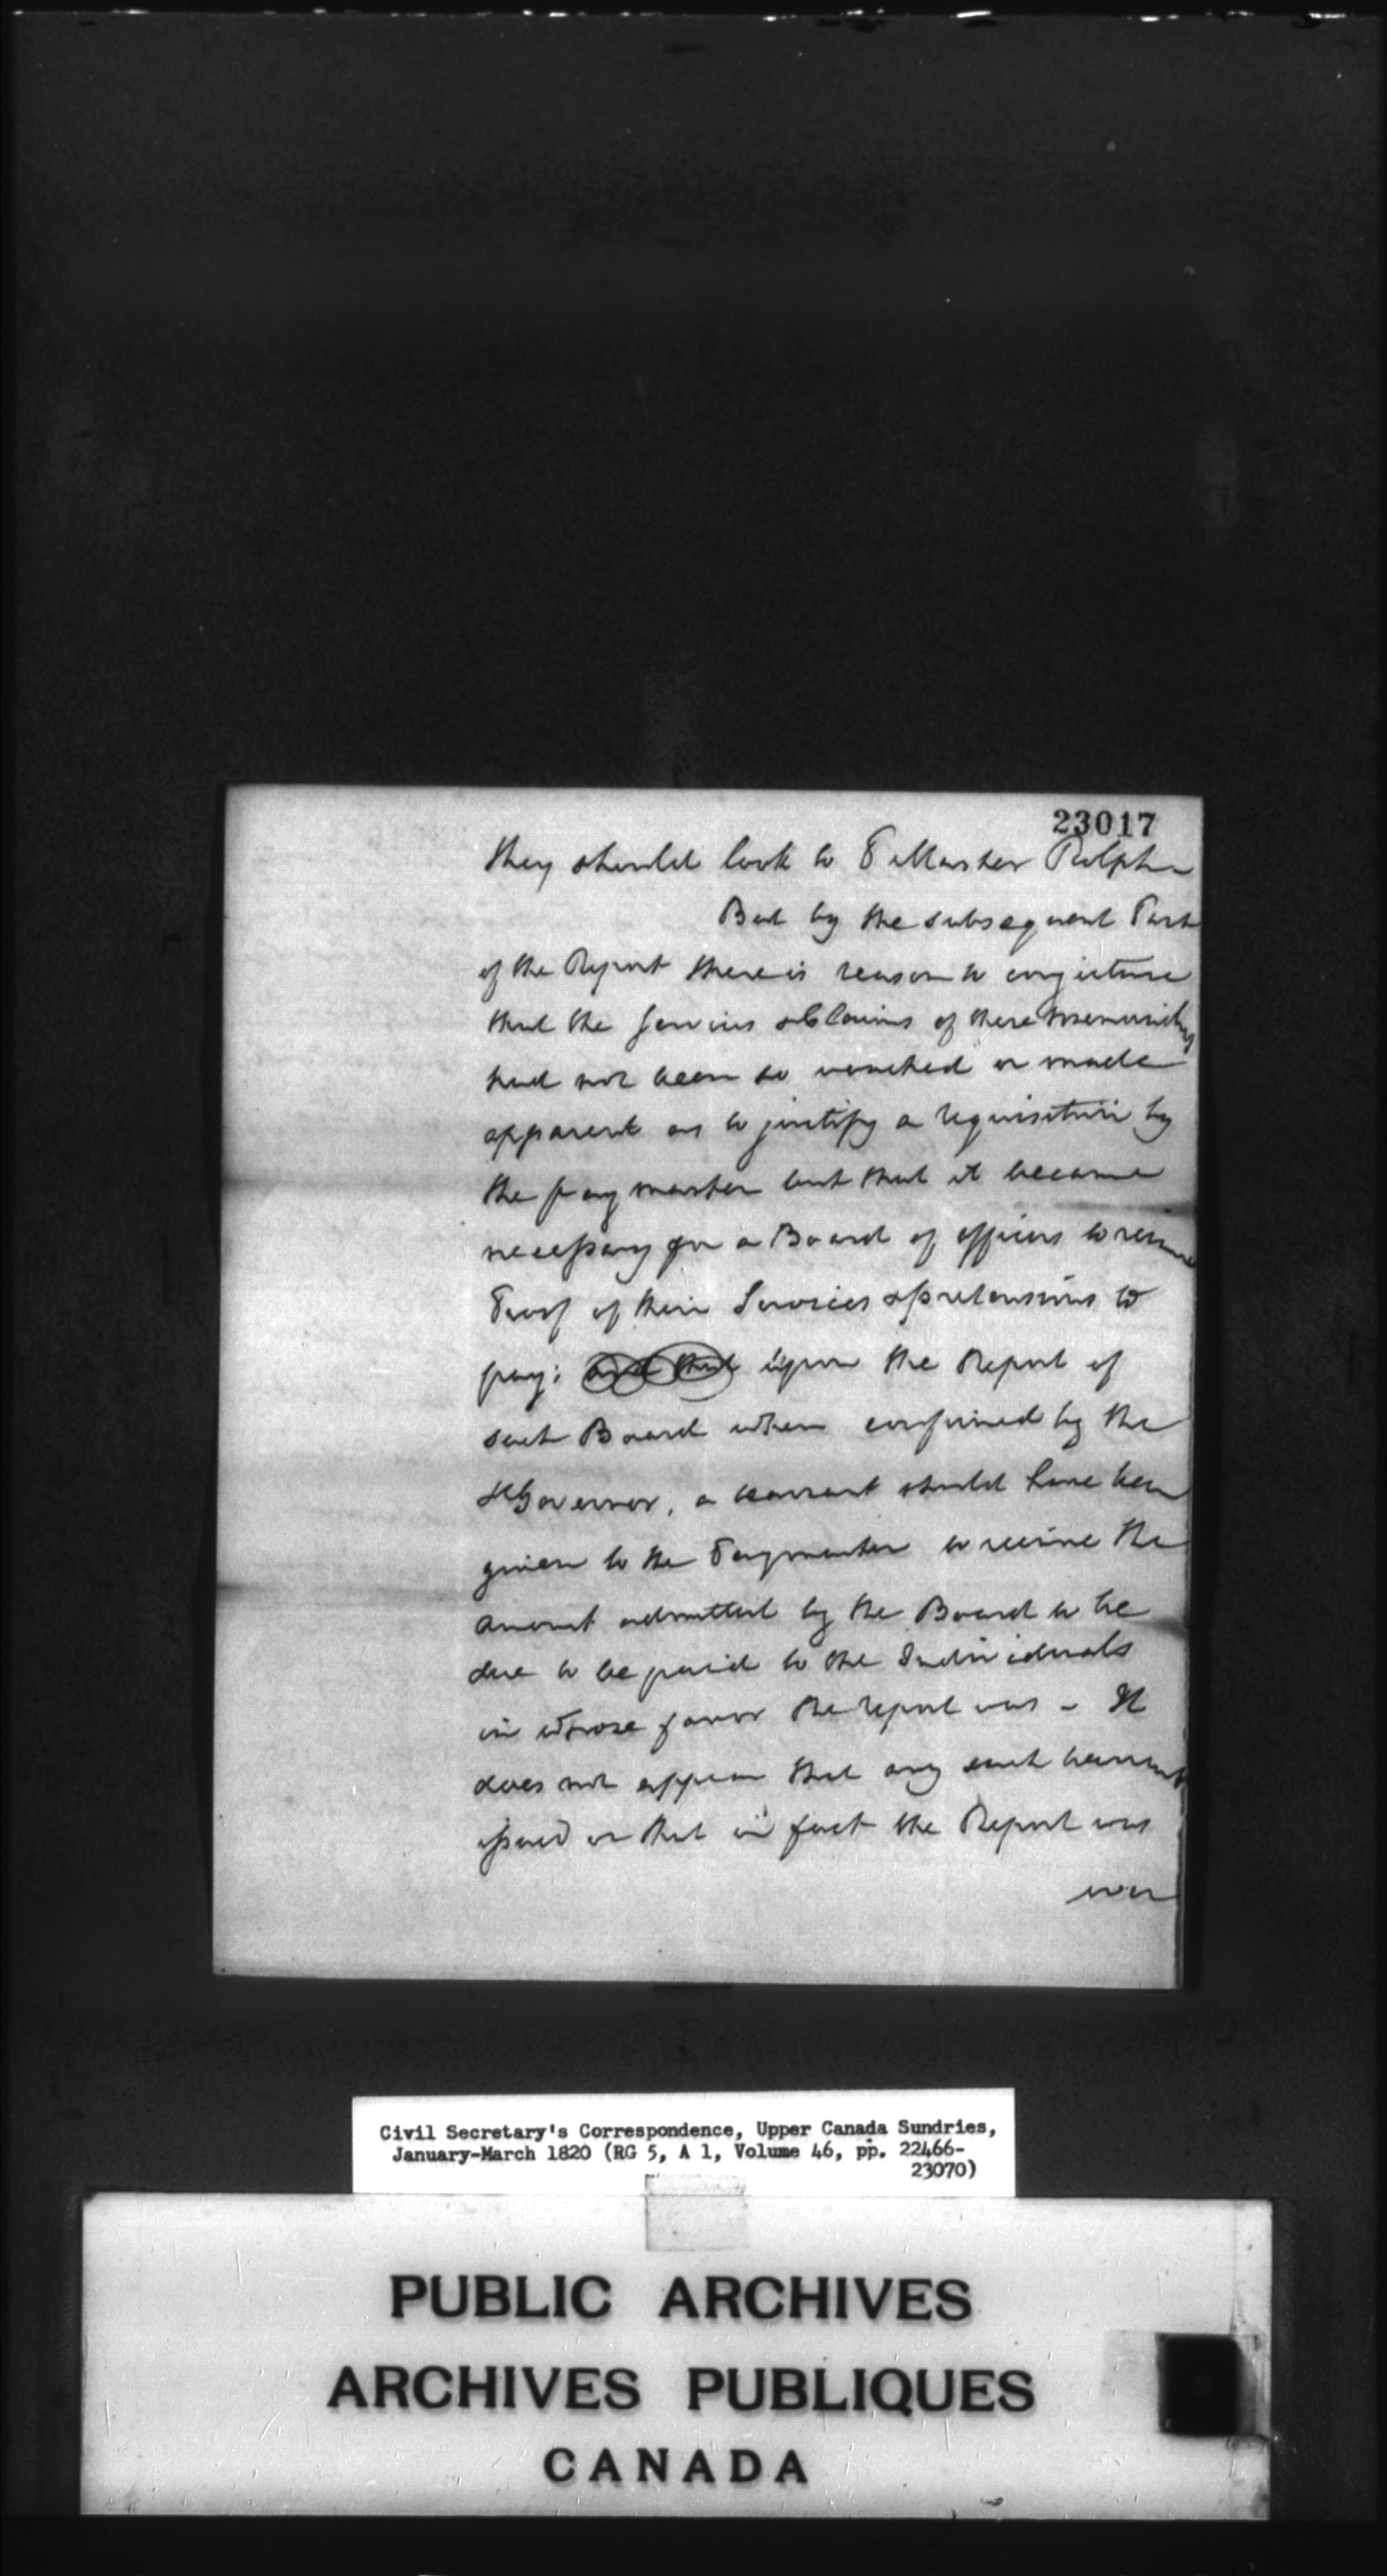 23017
they should look to P Master Rolph
But by the subsequent Part
of the Report there is reason to conjecture
that the Services & Claims of these
had not been so vouched or made
apparent as to justify a requisition by
the paymaster but that it became
necessary for a Board of officers to
Proof of their Services & pretensions to
pay: and that upon the Report of
such Board when confirmed by the
Governor, a warrant should have been
given to the Paymaster to receive the
amount admitted by the Board to be
due to be paid to the Individuals
in whose favor the report was - It
does not appear that any such warrant
issued or that in fact the Report was
ever
Civil Secretary's Correspondence, Upper Canada Sundries,
January-March 1820 (RG 5, A 1, Volume 46, pp. 22466-
23070)
PUBLIC ARCHIVES
ARCHIVES PUBLIQUES
CANADA